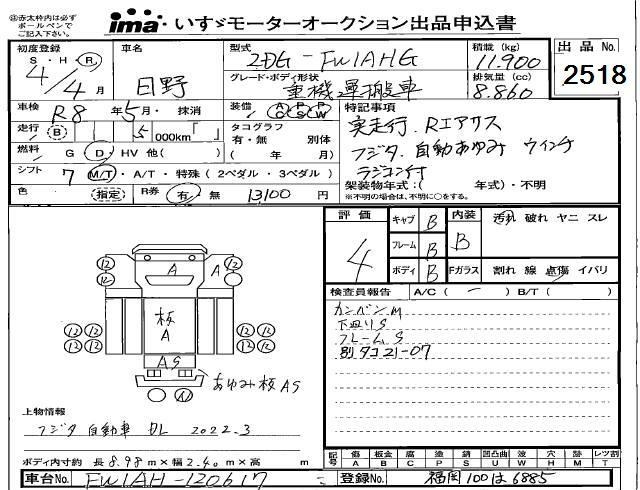 ㊟赤太枠内は必ず
ボールペンで
ご記入下さい。
ima いすゞモーターオークション出品申込書
初度登録
S ・ H ・ R
4/4月
車名
日野
型式
2DG-FW1AHG
積載 (kg)
11.900
出品No.
2518
グレード・ボディ形状
重機運搬車
排気量 (cc)
8.860
車検
R8年5月・ 抹消
装備
AC PS PW
特記事項
実走行. Rエアサス
フジタ. 自動あゆみ ウインチ
ラジコン付
走行
B
5000km「 」
タコグラフ
有・無 別体
( 年 月)
燃料
G D HV 他( )
シフト
7 M/T・A/T・特殊 (2ペダル・3ペダル)
架装物年式:( 年式)・不明
※不明の場合は、不明に○をする。
色
(指定)
R券
有・無
13100円
評価
4
キャブ B
フレーム B
ボディ B
内装
B
汚れ 破れ ヤニ スレ
Fガラス
割れ 線 点傷 イバリ
検査員報告
A/C( ー ) B/T( )
カンバンM
下廻りS
フレームS
別タコ21-07
A
A
板
A
AS
あゆみ板AS
12 12 12 12
12 12 12 12
上物情報
フジタ自動車 DL 2022.3
ボディ内寸約 長8.98m×幅2.40m×高 m
記号
傷 板金 腐 塗 錆 凹凸曲 波 穴 跡 レツ割
A B C P S U W H M T
車台No.
FW1AH-120617
登録No.
福岡 100は6885